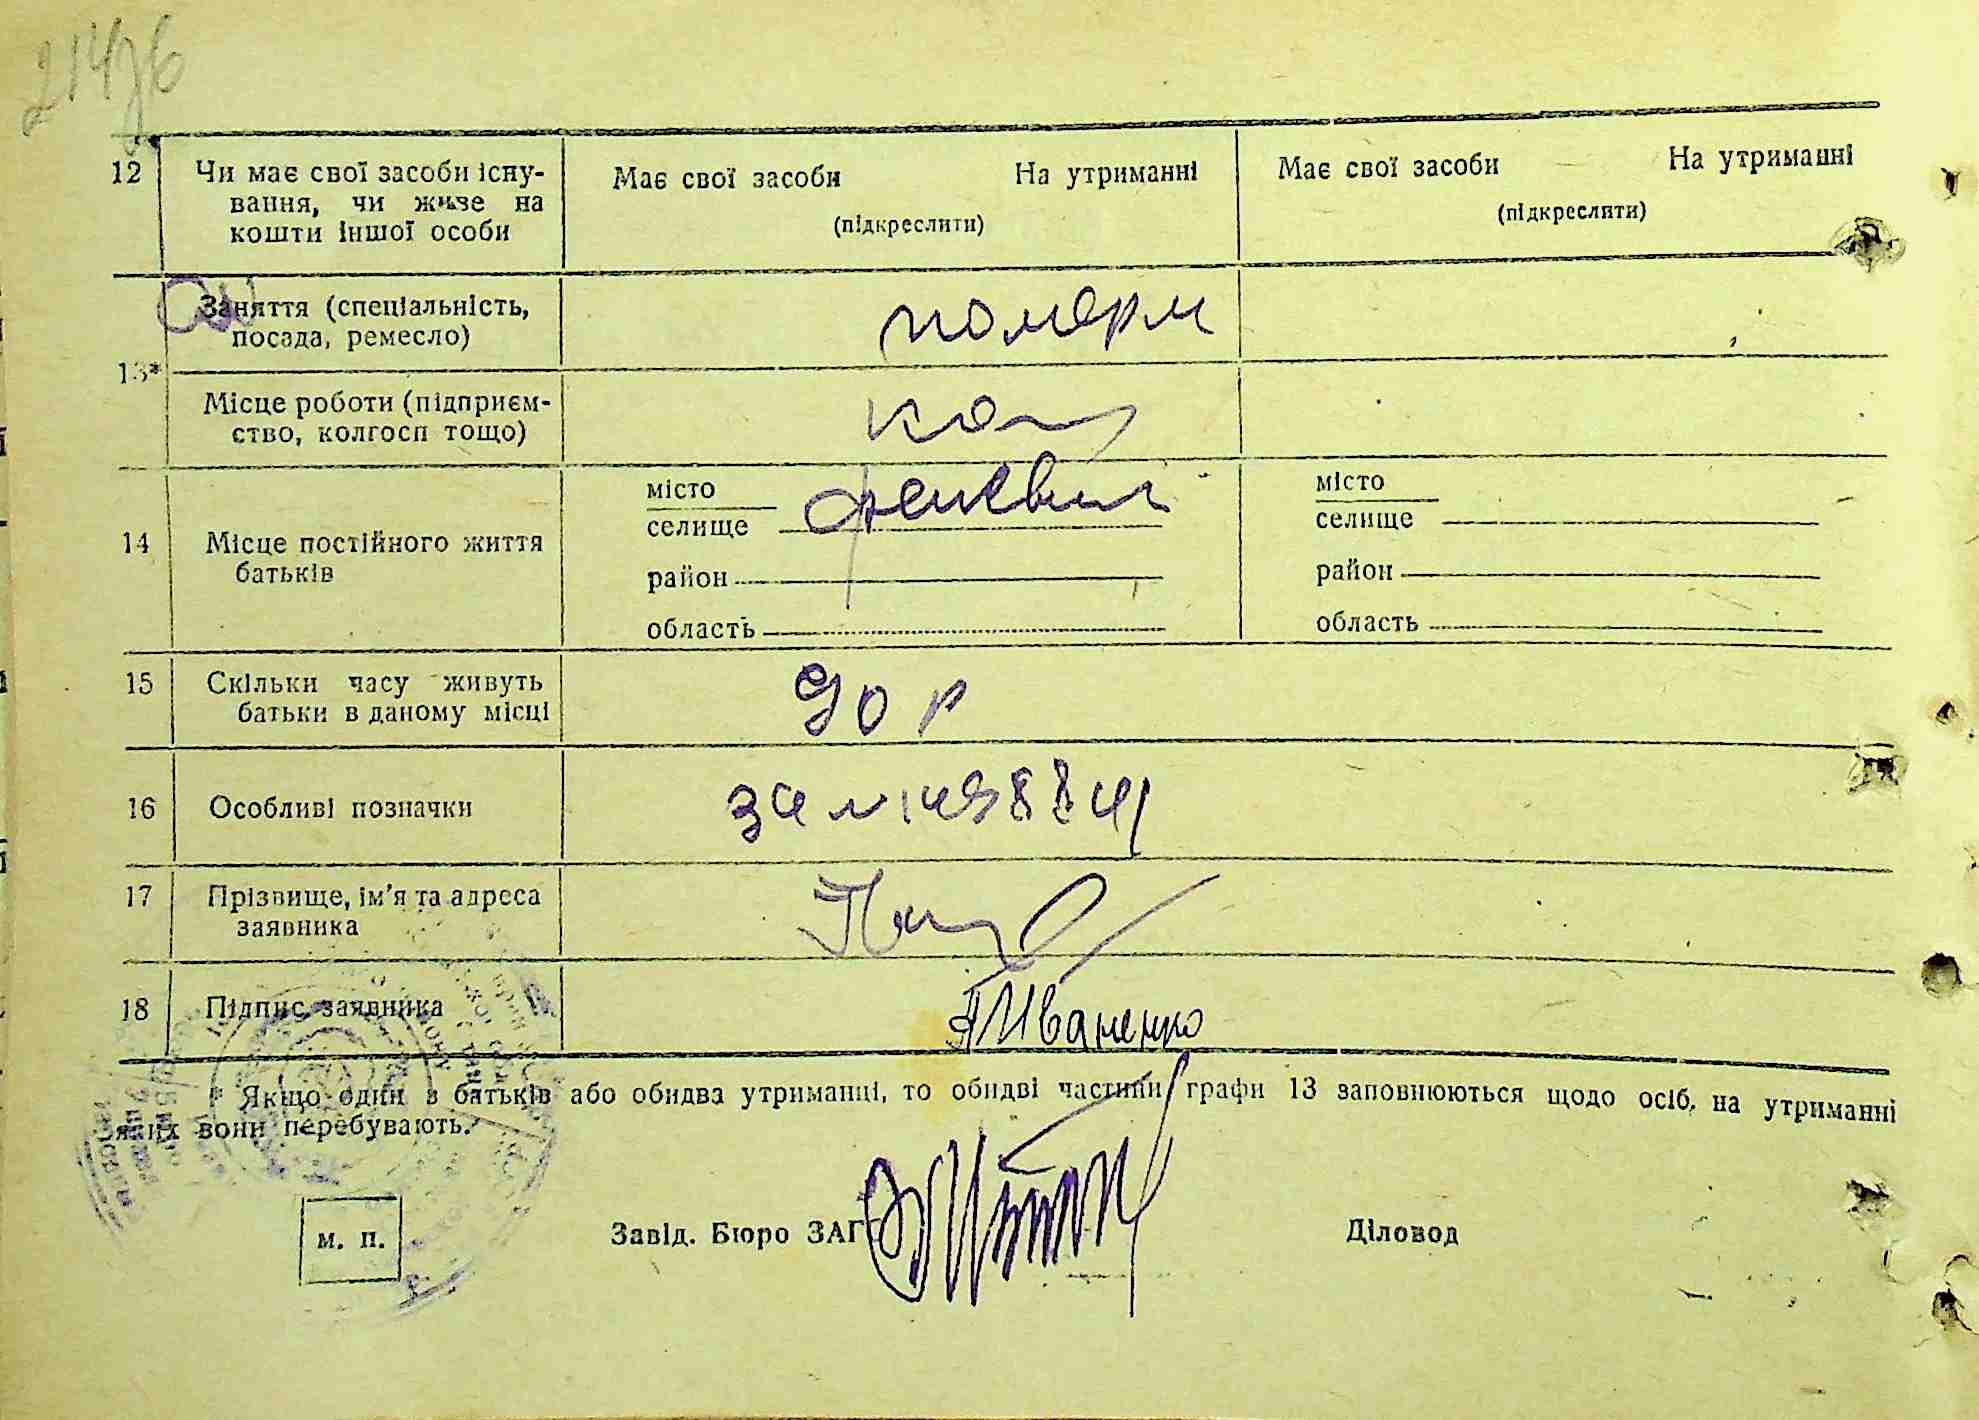 12 Чи має свої засоби існу-
вання, чи живе на
кошти іншої особи
Має свої засоби На утриманні
(підкреслити)
Має свої засоби На утриманні
(підкреслити)
13*
Заняття (спеціальність,
посада, ремесло)
Місце роботи (підприєм-
ство, колгосп тощо)
14 Місце постійного життя
батьків
місто
селище
район
область
місто
селище
район
область
15 Скільки часу живуть
батьки в даному місці
16 Особливі позначки
17 Прізвище, ім'я та адреса
заявника
18 Підпис заявника
Иваненко
* Якщо один з батьків або обидва утриманні, то обидві частини графи 13 заповнюються щодо осіб, на утриманні
яких вони перебувають.
м. п.
Завід. Бюро ЗАГС
Діловод